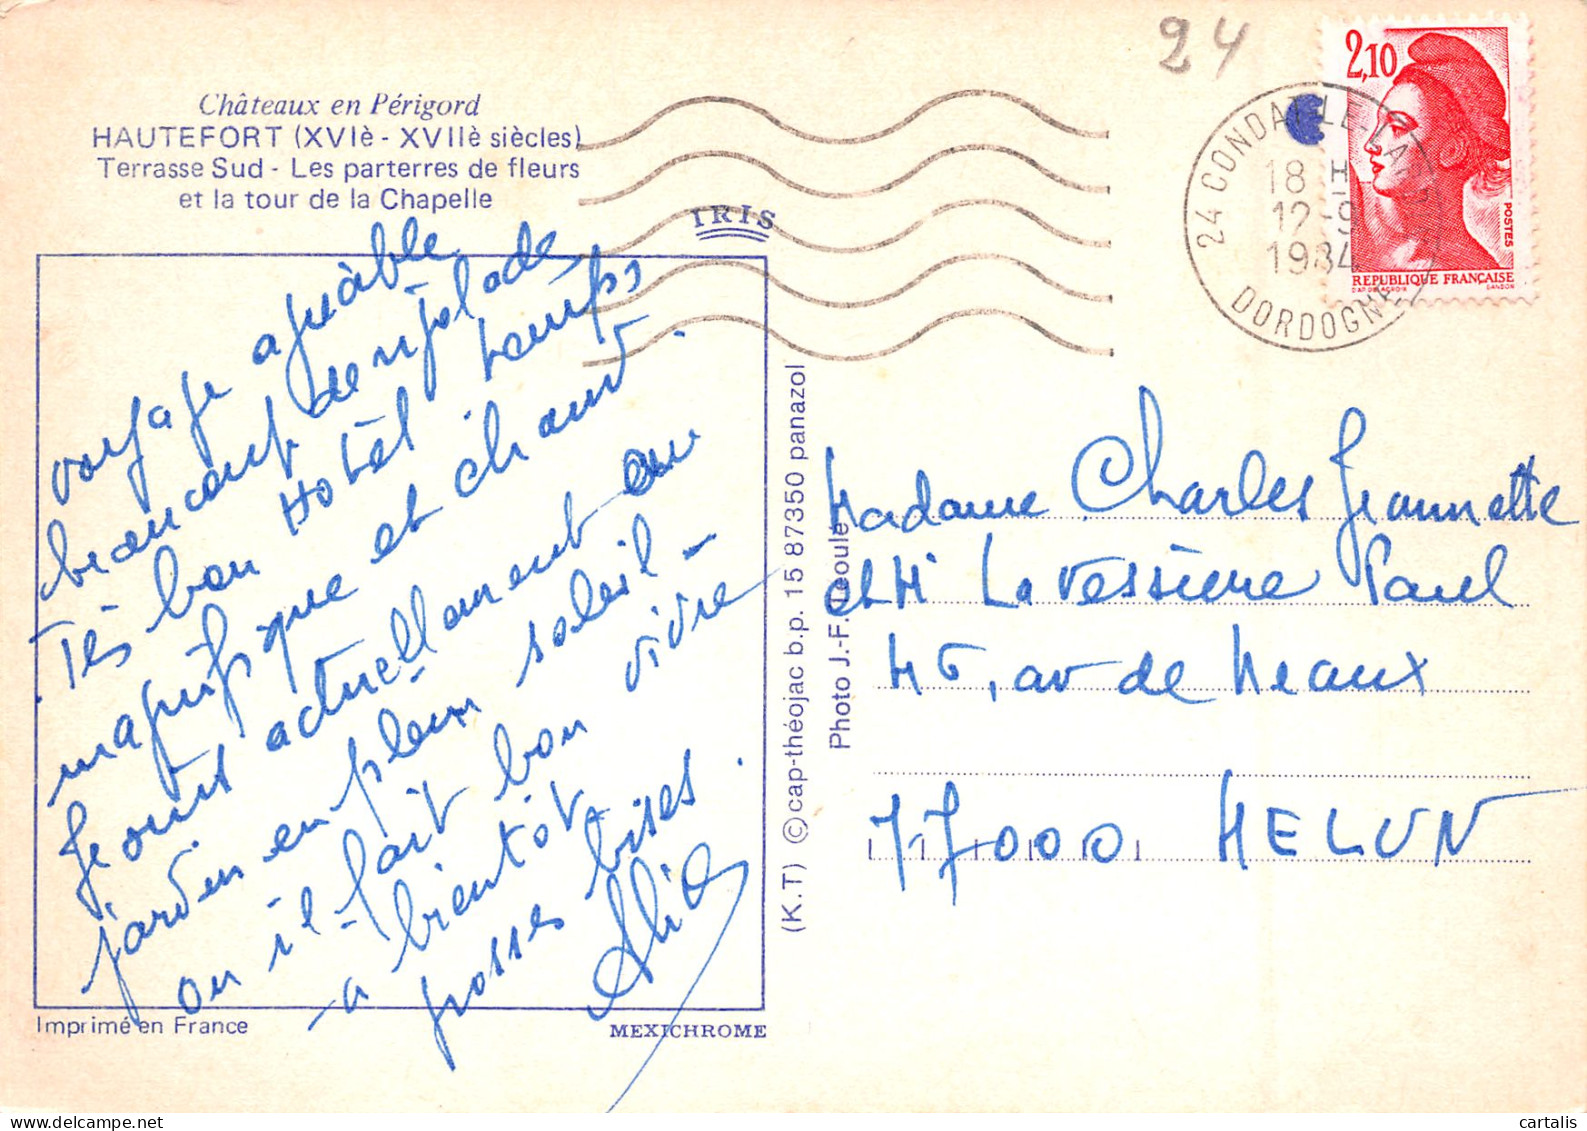 24
Châteaux en Périgord
HAUTEFORT (XVIè - XVIIè siècles)
Terrasse Sud - Les parterres de fleurs
et la tour de la Chapelle
IRIS
2,10
POSTES
REPUBLIQUE FRANÇAISE
24 CONDAT-LE-LA
18 H
12-9
1984
DORDOGNE
voyage agréable
beaucoup de rigolade
. Tès bon Hotel . temps
magnifique et chaud .
Je suis actuellement au
jardin en plein soleil -
ou il fait bon vivre
a bientôt
grosses bises .
(K.T) © cap-théojac b.p. 15 87350 panazol
Photo J.-F. Leoulé
Madame Charles Jeannette
ch Mr La Vessière Paul
46, av de Meaux
77000 MELUN
Imprimé en France
MEXICHROME
cartalis